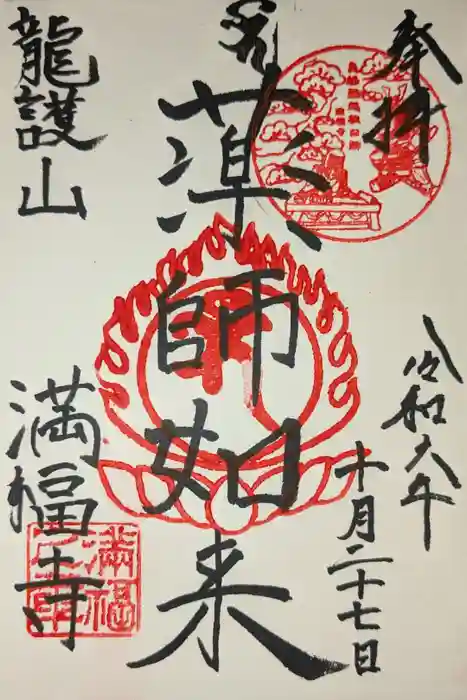 奉拝
令和六年
十月二十七日
薬師如来
龍護山
満福寺
満福